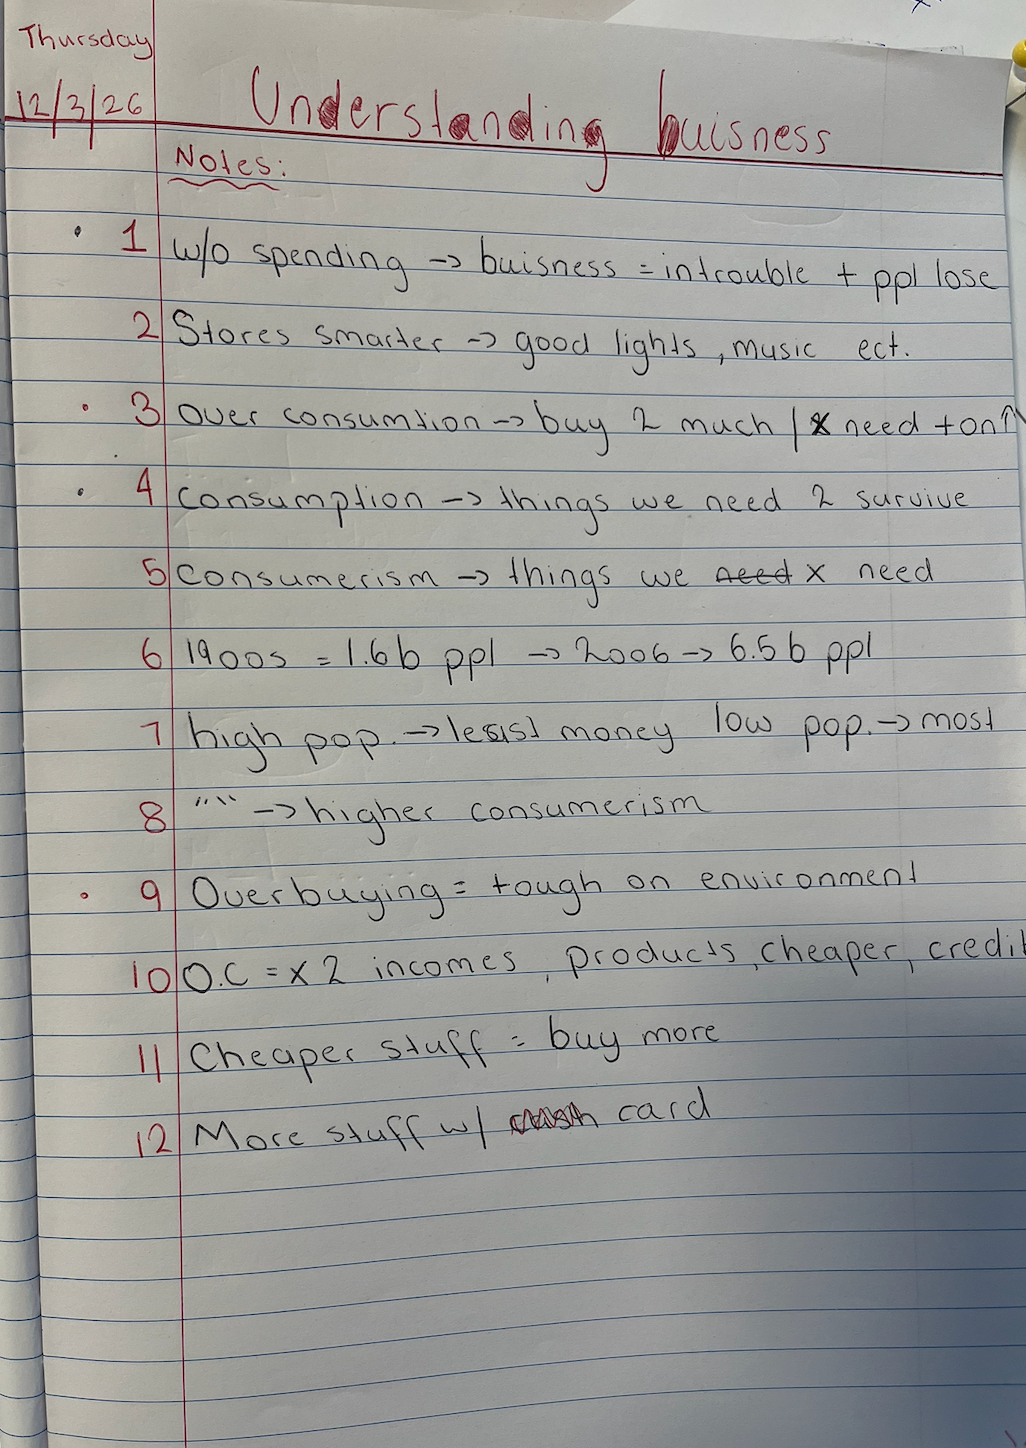 Thursday
12/3/26
Understanding buisness
Notes:
1 w/o spending -> buisness = introuble + ppl lose
2 Stores smarter -> good lights, music ect.
3 over consumtion -> buy 2 much / x need
4 consumption -> things we need 2 survive
5 consumerism -> things we need x need
6 1900s = 1.6b ppl -> 2006 -> 6.5b ppl
7 high pop. -> least money low pop. -> most
8 "" -> higher consumerism
9 Overbuying = tough on environment
10 O.C = x2 incomes, products, cheaper, credit
11 Cheaper stuff = buy more
12 More stuff w/ card